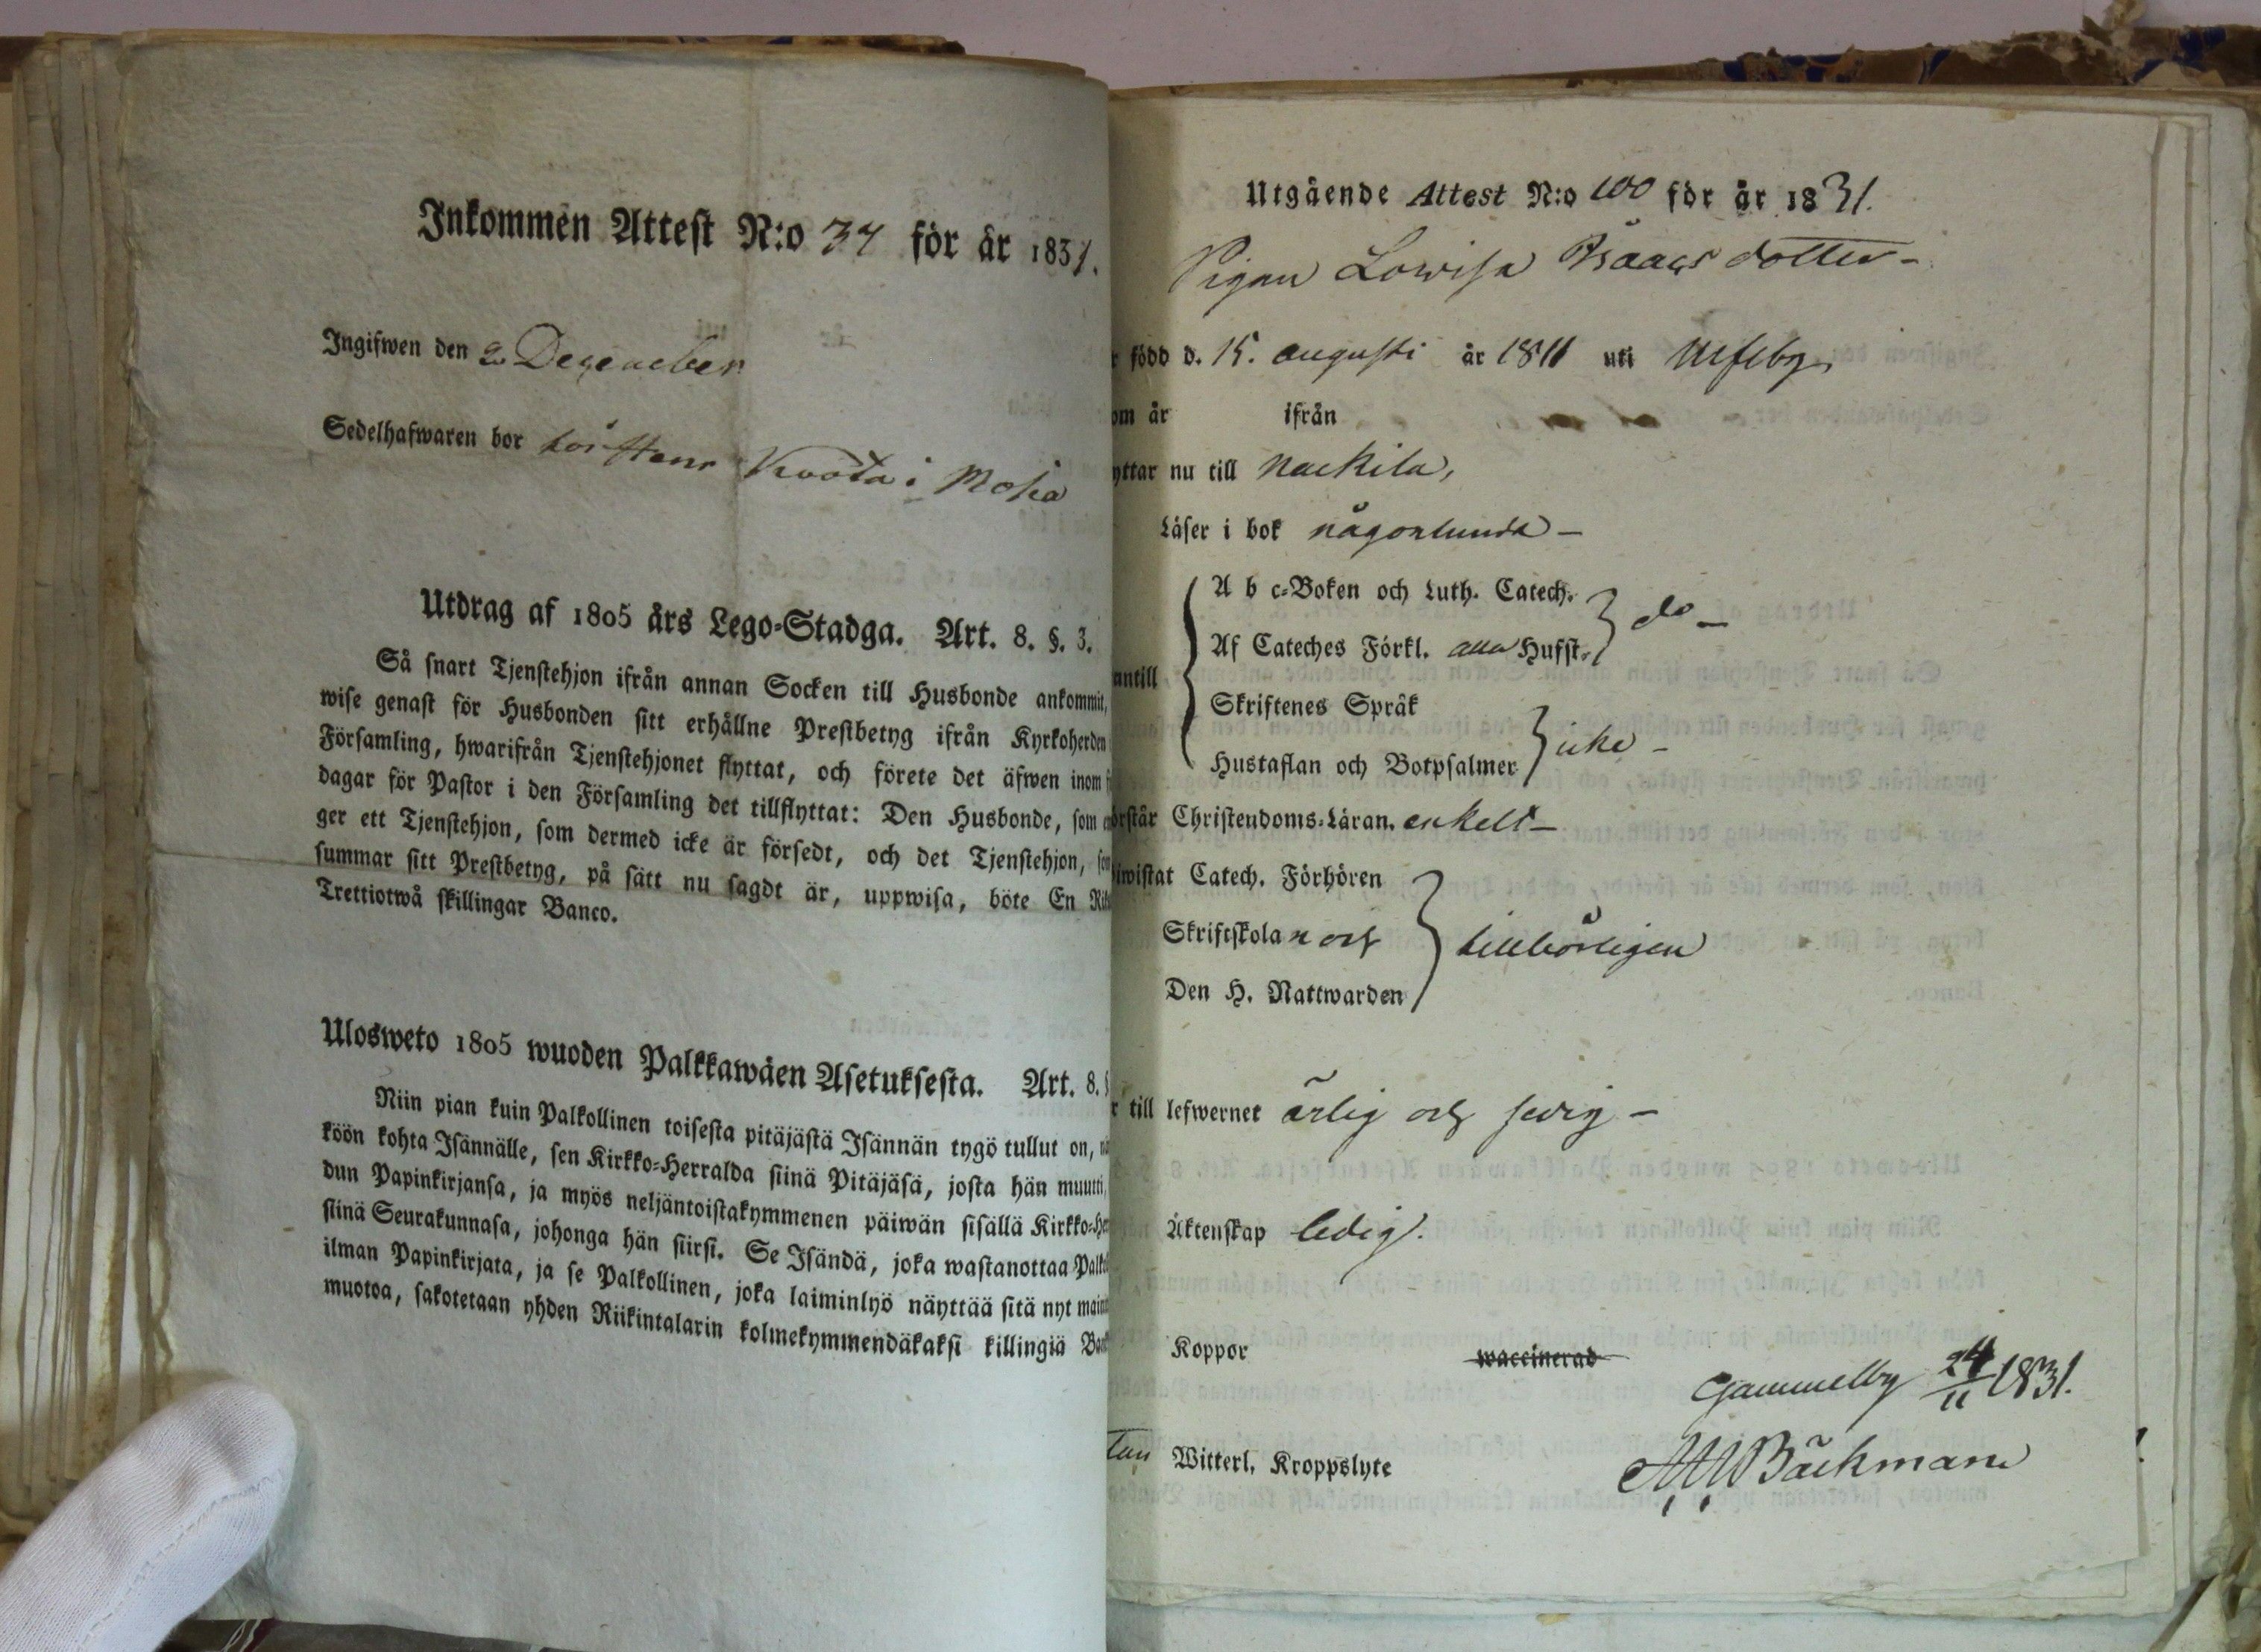 Inkommen Attest N:o 37 för år 1831.
Ingifwen den 2 December
Sedelhafwaren bor i
Utdrag af 1805 års Lego-Stadga. Art. 8. §. 3.
Så snart Tjenstehjon ifrån annan Socken till Husbonde ankommit,
wise genast för Husbonden sitt erhållne Prestbetyg ifrån Kyrkoherden
Församling, hwarifrån Tjenstehjonet flyttat, och förete det äfwen inom
dagar för Pastor i den Församling det tillflyttat: Den Husbonde, som
ger ett Tjenstehjon, som dermed icke är försedt, och det Tjenstehjon,
summar sitt Prestbetyg, på sätt nu sagdt är, uppwisa, böte En
Trettiotwå skillingar Banco.
Ulosweto 1805 wuoden Palkkawäen Asetuksesta. Art. 8.
Niin pian kuin Palkollinen toisesta pitäjästä Isännän tygö tullut on,
köön kohta Isännälle, sen Kirkko-Herralda siinä Pitäjäsä, josta hän muutti,
dun Papinkirjansa, ja myös neljäntoistakymmenen päiwän sisällä Kirkko-
siinä Seurakunnasa, johonga hän siirsi. Se Isändä, joka wastanottaa
ilman Papinkirjata, ja se Palkollinen, joka laiminlyö näyttää sitä nyt
muotoa, sakotetaan yhden Riikintalarin kolmekymmendäkaksi killingiä
Utgående Attest N:o 100 för år 1831.
Pigan Lowisa Isaacsdotter -
född d. 15. augusti år 1811 uti Ulfsby,
om år ifrån
yttar nu till Nackila,
Läser i bok någorlunda -
A b c-Boken och Luth. Catech.
do -
Af Cateches Förkl. alla Hufst.
antill
Skriftenes Språk
Hustaflan och Botpsalmer
icke -
örstår Christendoms-Läran. enkelt -
iwistat Catech. Förhören
Skriftskolan och
tillbörligen
Den H. Nattwarden
r till lefwernet ärlig och sedig -
Äktenskap ledig.
Koppor waccinerad
Gammelby 24/11 1831.
tan Witterl. Kroppslyte
Bäckman